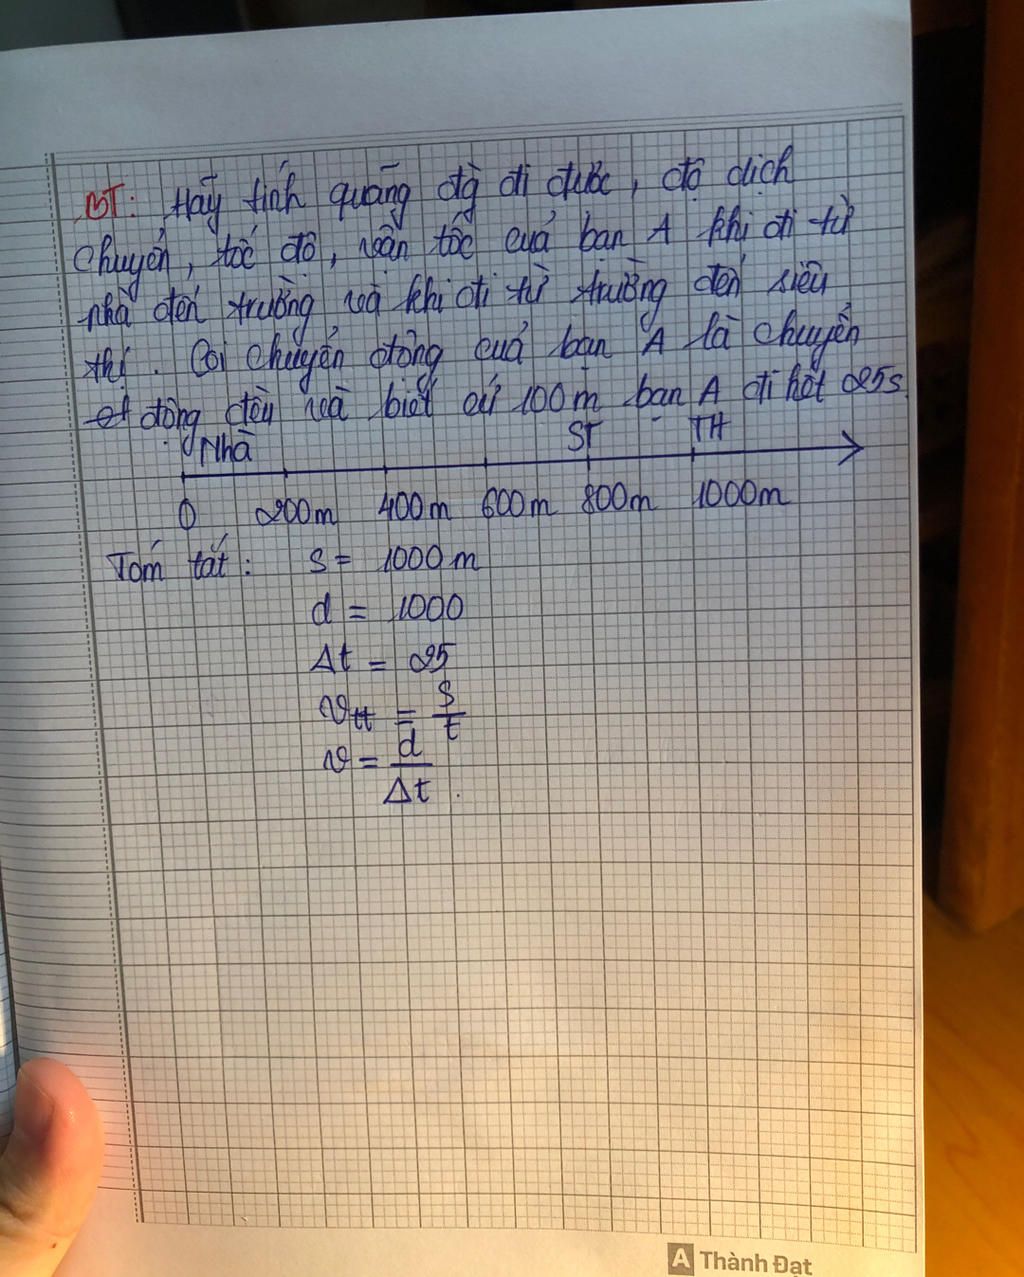 BT: Hãy tính quãng đg đi được, độ dịch
chuyển, tốc độ, vận tốc của bạn A khi đi từ
nhà đến trường và khi đi từ trường đến siêu
thị. Coi chuyển động của bạn A là chuyển
động đều và biết cứ 100m bạn A đi hết 25s
Nhà ST TH
0 200m 400m 600m 800m 1000m
Tóm tắt: s = 1000m
d = 1000
Δt = 25
v_tt = s/t
v = d/Δt.
A Thành Đạt